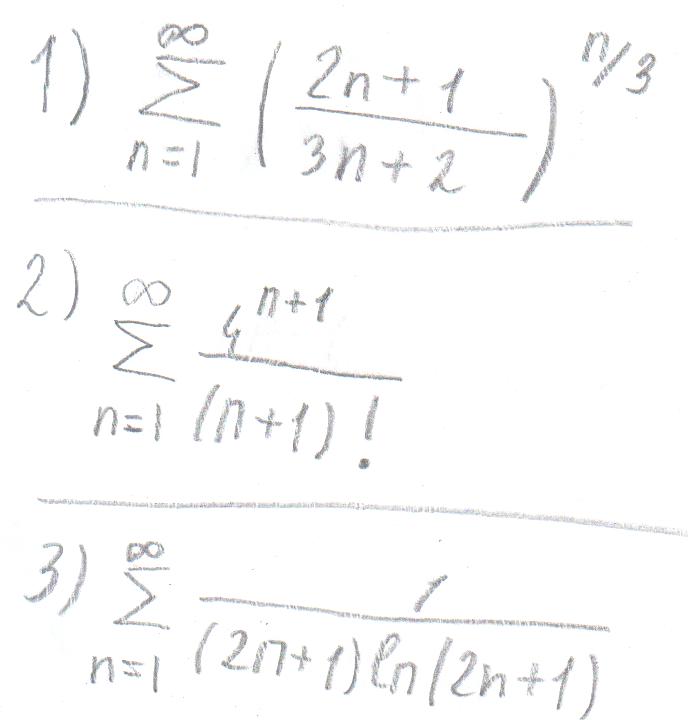 1) \sum_{n=1}^{\infty} \left( \frac{2n+1}{3n+2} \right)^{n/3}
2) \sum_{n=1}^{\infty} \frac{4^{n+1}}{(n+1)!}
3) \sum_{n=1}^{\infty} \frac{1}{(2n+1) \ln(2n+1)}